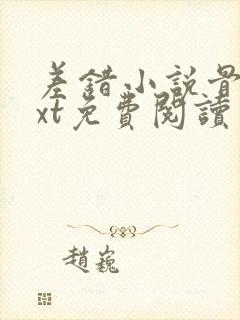 差錯小說骨
xt免費閱讀
趙巍